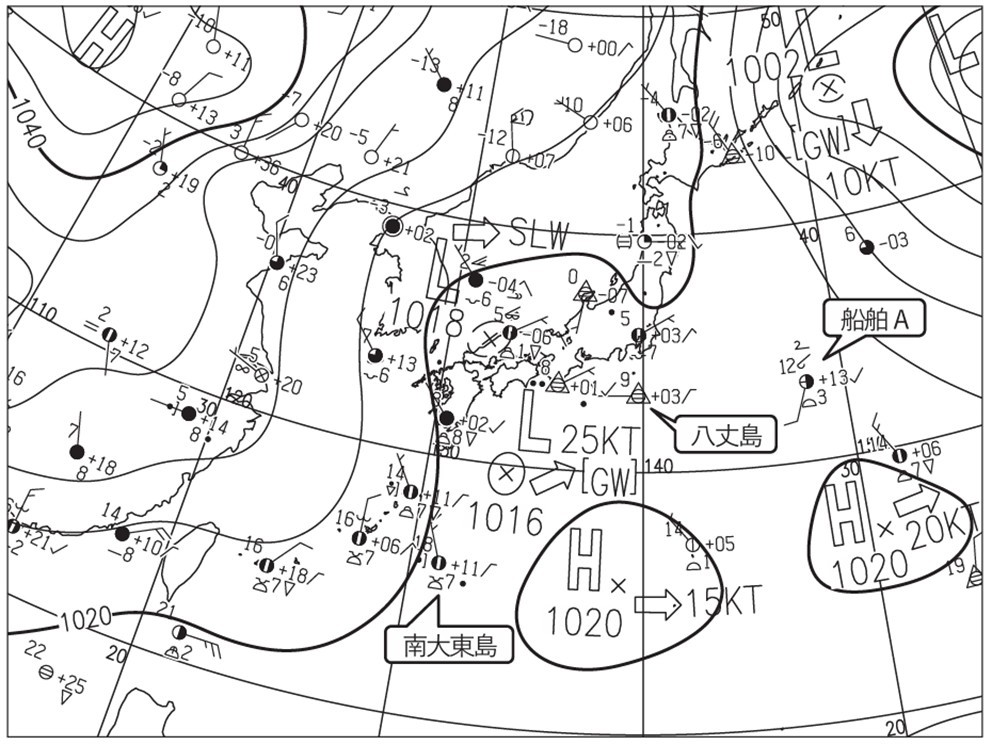 -10
+11
-8
+13
-7
+20
3
+36
40
-2
+19
2
1040
-13
+11
8
-5
+21
-12
+07
-10
+06
-18
+00
50
1002
[GW]
10KT
-4
-02
7
-6
-10
-1
02
-2
40
6
-03
-3
+02
SLW
L
1018
2
-04
6
5
-06
1
0
-07
5
+03
7
8
+01
9
+03
-0
+23
6
110
2
+12
7
16
+13
6
-5
+20
120
5
30
+14
8
7
+18
8
+02
8
130
L
25KT
[GW]
1016
140
船舶A
2
12
+13
3
八丈島
114
+06
7
30
H
20KT
1020
19
14
+11
7
16
+06
7
18
+11
7
14
+10
-8
16
+18
7
+21
-2
H
1020
15KT
14
+05
1
南大東島
1020
21
2
20
22
+25
20